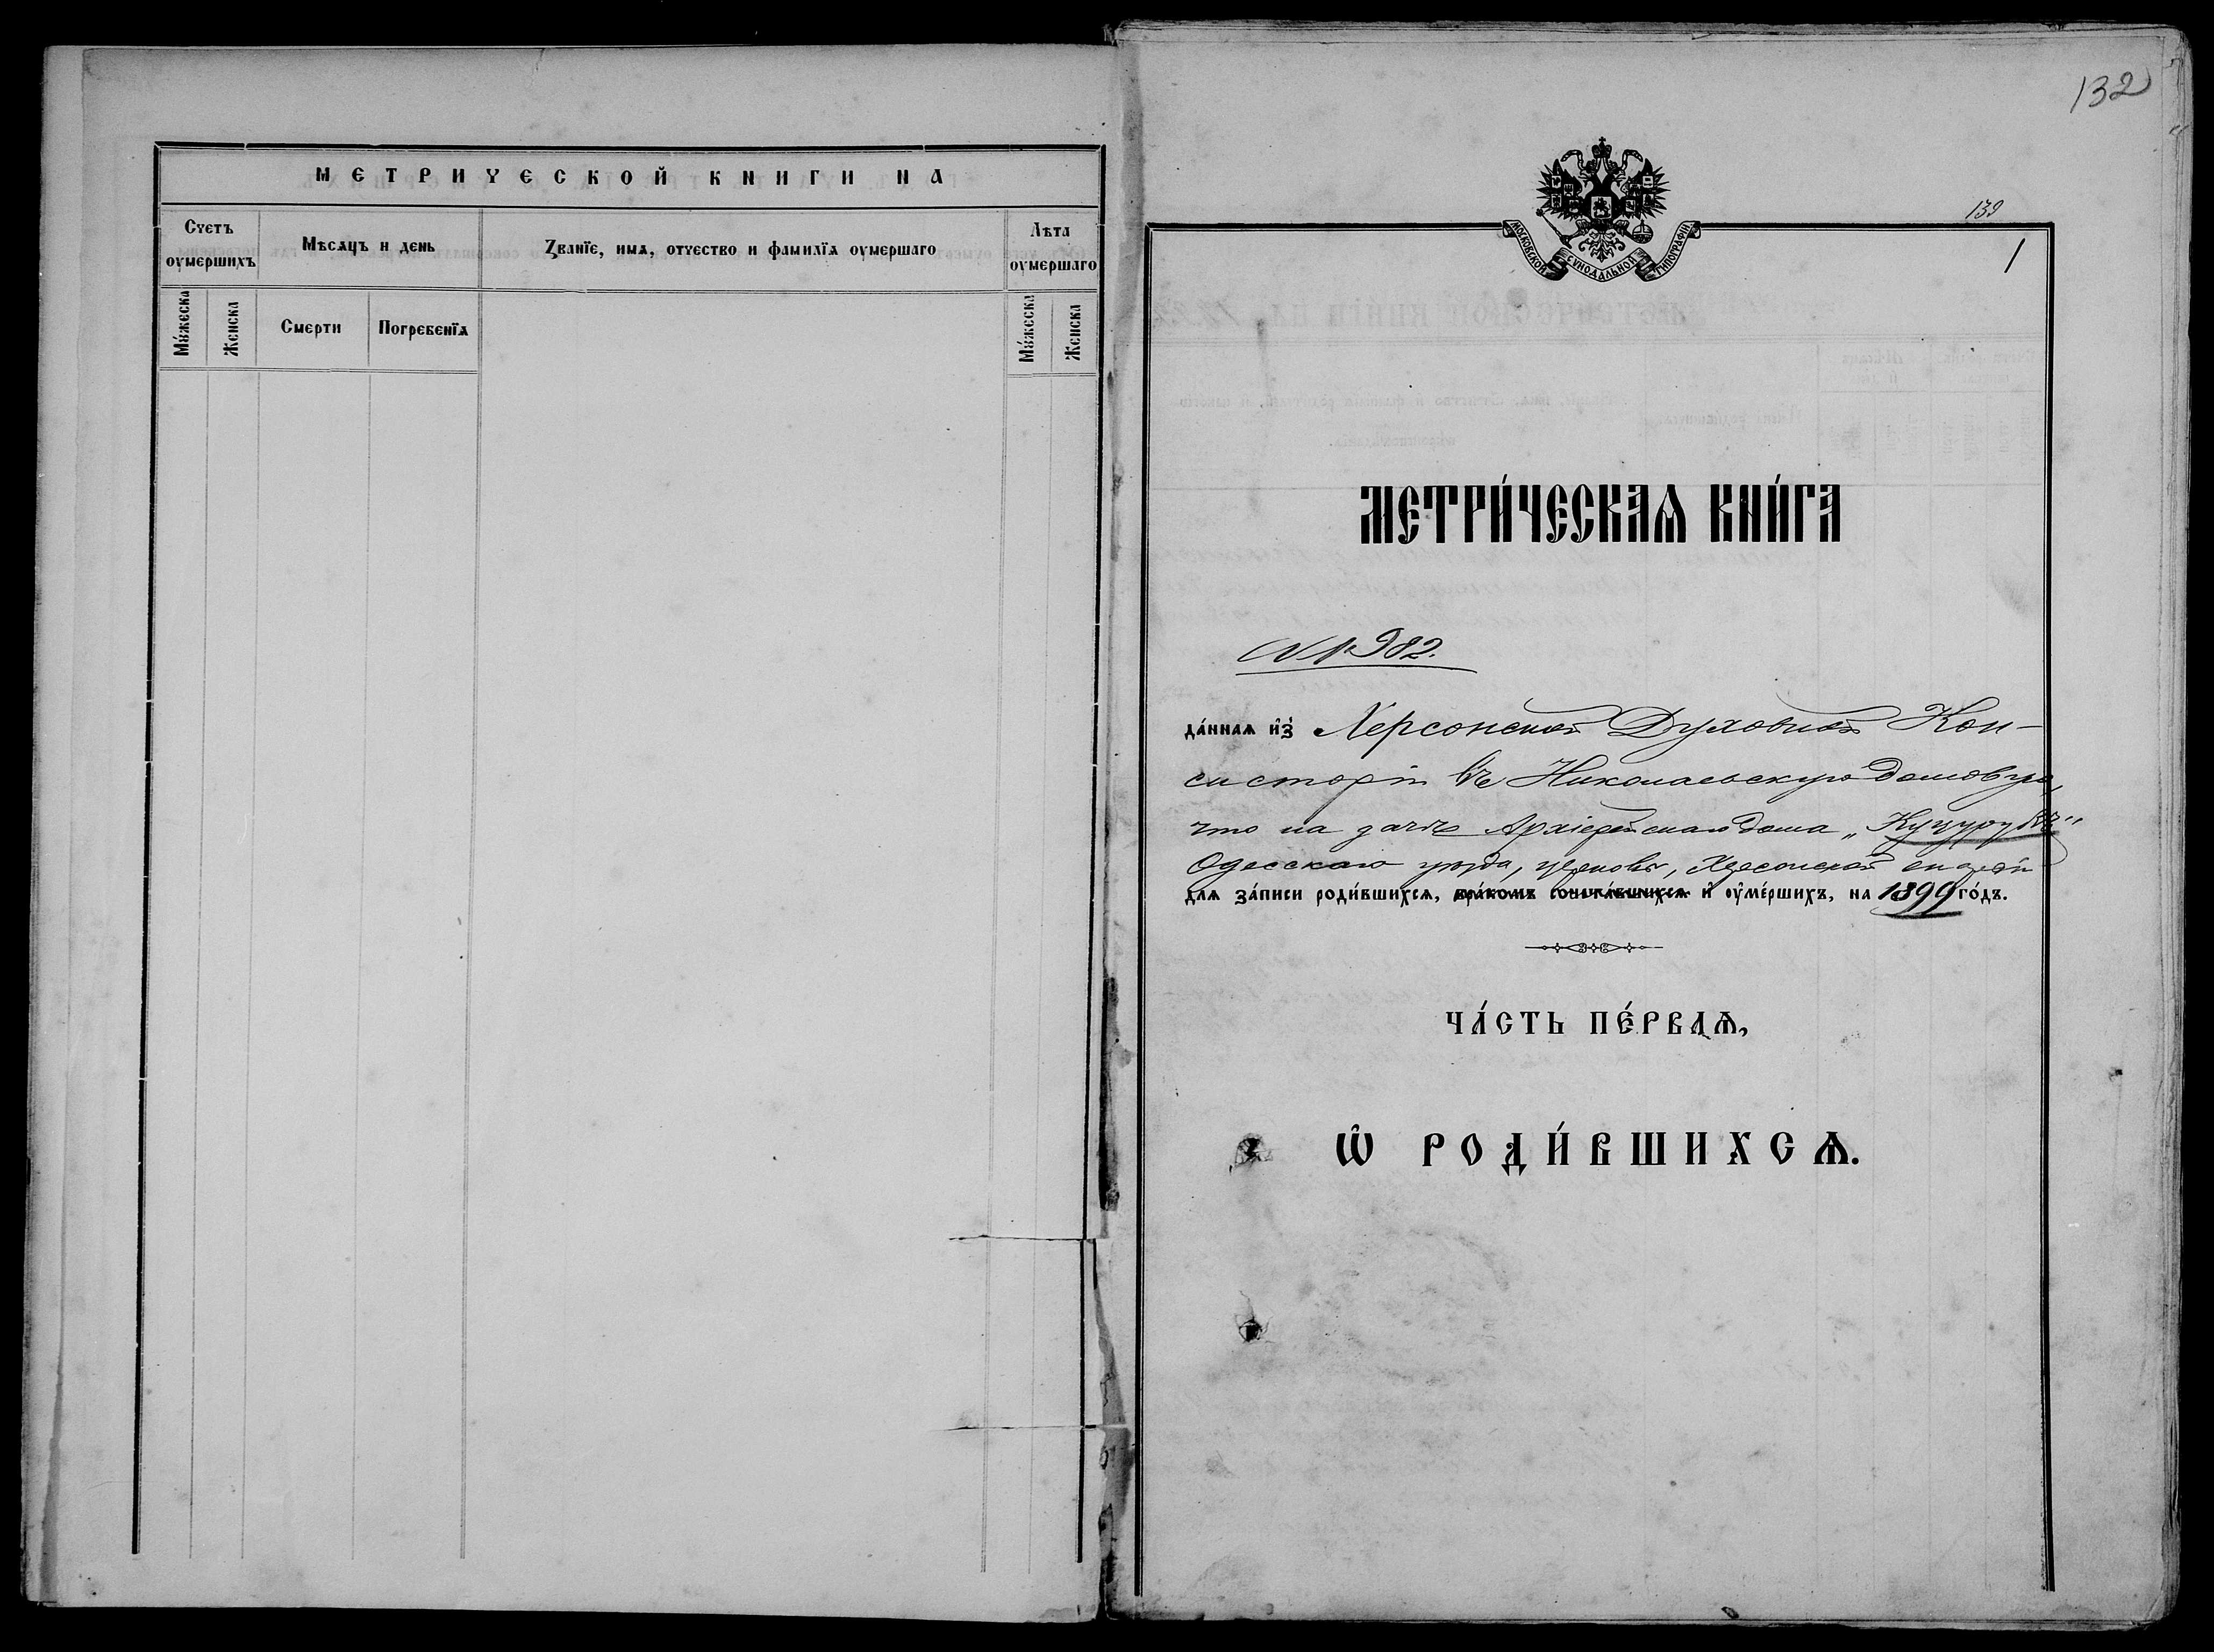 МЕТРИЧЕСКОЙ КНИГИ НА
Счетъ оумершихъ
Мѣсяцъ и день
Званїе, имѧ, отчество и фамилїѧ оумершаго
Лѣта оумершаго
Мꙋ́жеска
Женска
Смерти
Погребенїѧ
Мꙋ́жеска
Женска
132
139
1
МОСКОВСКОЙ СѴНОДАЛЬНОЙ ТИПОГРАФІИ
МЕТРИ́ЧЕСКАѦ КНИ́ГА
№ 982.
да́ннаѧ и҆з̾ Херсонской Духовной Кон-
систоріи въ Николаевскую домовую,
что на дачѣ Архіерейскаго дома „Кучурубъ"
Одесскаго уѣзда, церковь, Херсонской епархіи
длѧ за́писи роди́вшихсѧ, бра́комъ сочета́вшихсѧ и҆ оу҆ме́ршихъ, на 1899 го́дъ.
ЧА́СТЬ ПЕ́РВАѦ,
Ѡ҆ РОДИ́ВШИХСѦ.